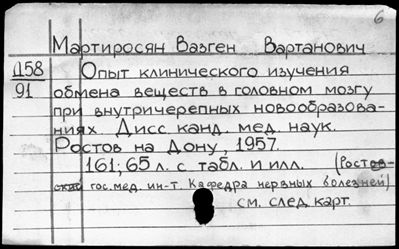 6
Мартиросян Вазген Вартанович
Д58 Опыт клинического изучения
91 обмена веществ в головном мозгу
при внутричерепных новообразова-
ниях. Дисс. канд. мед. наук.
Ростов на Дону, 1957.
161; 65 л. с табл. и илл. (Ростов-
ский гос. мед. ин-т. Кафедра нервных болезней)
см. след. карт.